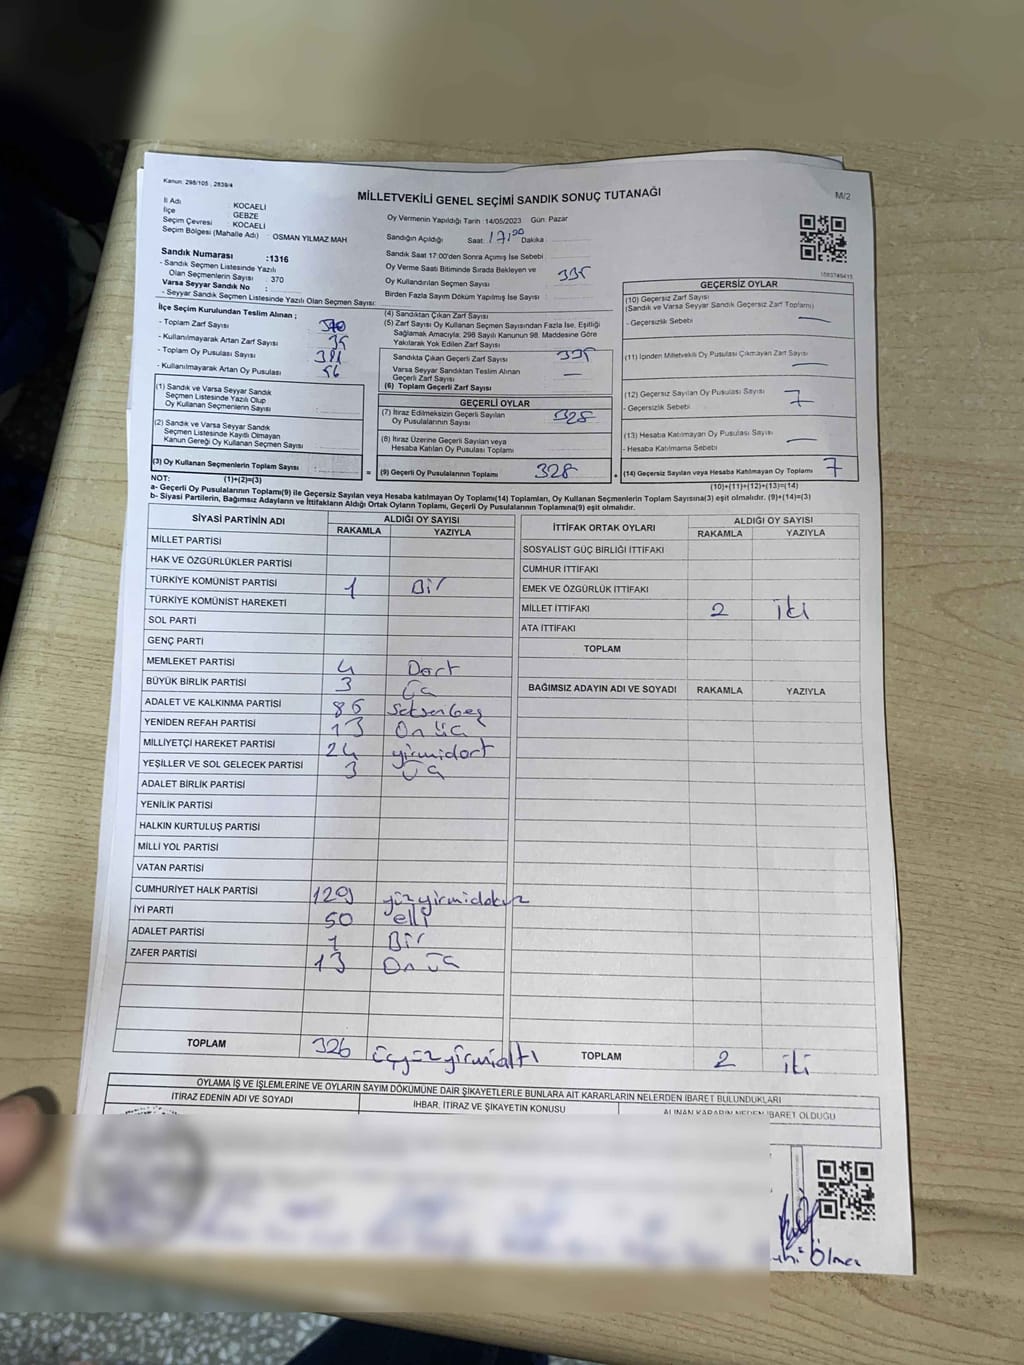 Kanun: 298/105 , 2839/4
MİLLETVEKİLİ GENEL SEÇİMİ SANDIK SONUÇ TUTANAĞI
M/2
İl Adı : KOCAELİ
İlçe : GEBZE
Seçim Çevresi : KOCAELİ
Seçim Bölgesi (Mahalle Adı) : OSMAN YILMAZ MAH
Sandık Numarası :1316
- Sandık Seçmen Listesinde Yazılı
Olan Seçmenlerin Sayısı : 370
Varsa Seyyar Sandık No :
- Seyyar Sandık Seçmen Listesinde Yazılı Olan Seçmen Sayısı:
Oy Vermenin Yapıldığı Tarih :14/05/2023 Gün: Pazar
Sandığın Açıldığı Saat: 17:00 Dakika
Sandık Saat 17:00'den Sonra Açımış İse Sebebi
Oy Verme Saati Bitiminde Sırada Bekleyen ve
Oy Kullandırılan Seçmen Sayısı 335
Birden Fazla Sayım Döküm Yapılmış İse Sayısı
İlçe Seçim Kurulundan Teslim Alınan ;
- Toplam Zarf Sayısı 370
- Kullanılmayarak Artan Zarf Sayısı 35
- Toplam Oy Pusulası Sayısı
- Kullanılmayarak Artan Oy Pusulası 56
(1) Sandık ve Varsa Seyyar Sandık
Seçmen Listesinde Yazılı Olup
Oy Kullanan Seçmenlerin Sayısı
(2) Sandık ve Varsa Seyyar Sandık
Seçmen Listesinde Kayıtlı Olmayan
Kanun Gereği Oy Kullanan Seçmen Sayısı
(3) Oy Kullanan Seçmenlerin Toplam Sayısı
(1)+(2)=(3)
(4) Sandıktan Çıkan Zarf Sayısı
(5) Zarf Sayısı Oy Kullanan Seçmen Sayısından Fazla İse, Eşitliği
Sağlamak Amacıyla; 298 Sayılı Kanunun 98. Maddesine Göre
Yakılarak Yok Edilen Zarf Sayısı
Sandıkta Çıkan Geçerli Zarf Sayısı 335
Varsa Seyyar Sandıktan Teslim Alınan
Geçerli Zarf Sayısı —
(6) Toplam Geçerli Zarf Sayısı
GEÇERLİ OYLAR
(7) İtiraz Edilmeksizin Geçerli Sayılan
Oy Pusulalarının Sayısı 328
(8) İtiraz Üzerine Geçerli Sayılan veya
Hesaba Katılan Oy Pusulaları Toplamı
= (9) Geçerli Oy Pusulalarının Toplamı 328
GEÇERSİZ OYLAR
(10) Geçersiz Zarf Sayısı
(Sandık ve Varsa Seyyar Sandık Geçersiz Zarf Toplamı)
- Geçersizlik Sebebi —
(11) İçinden Milletvekili Oy Pusulası Çıkmayan Zarf Sayısı —
(12) Geçersiz Sayılan Oy Pusulası Sayısı 7
- Geçersizlik Sebebi
(13) Hesaba Katılmayan Oy Pusulası Sayısı —
- Hesaba Katılmama Sebebi
+ (14) Geçersiz Sayılan veya Hesaba Katılmayan Oy Toplamı 7
(10)+(11)+(12)+(13)=(14)
NOT:
a- Geçerli Oy Pusulalarının Toplamı(9) ile Geçersiz Sayılan veya Hesaba katılmayan Oy Toplamı(14) Toplamları, Oy Kullanan Seçmenlerin Toplam Sayısına(3) eşit olmalıdır. (9)+(14)=(3)
b- Siyasi Partilerin, Bağımsız Adayların ve İttifakların Aldığı Ortak Oyların Toplamı, Geçerli Oy Pusulalarının Toplamına(9) eşit olmalıdır.
SİYASİ PARTİNİN ADI ALDIĞI OY SAYISI
RAKAMLA YAZIYLA
MİLLET PARTİSİ
HAK VE ÖZGÜRLÜKLER PARTİSİ
TÜRKİYE KOMÜNİST PARTİSİ 1 Bir
TÜRKİYE KOMÜNİST HAREKETİ
SOL PARTİ
GENÇ PARTİ
MEMLEKET PARTİSİ 4 Dört
BÜYÜK BİRLİK PARTİSİ 3 Üç
ADALET VE KALKINMA PARTİSİ 85 Seksenbeş
YENİDEN REFAH PARTİSİ 13 Onüç
MİLLİYETÇİ HAREKET PARTİSİ 24 yirmidört
YEŞİLLER VE SOL GELECEK PARTİSİ 3 Üç
ADALET BİRLİK PARTİSİ
YENİLİK PARTİSİ
HALKIN KURTULUŞ PARTİSİ
MİLLİ YOL PARTİSİ
VATAN PARTİSİ
CUMHURİYET HALK PARTİSİ 129 yüzyirmidokuz
İYİ PARTİ 50 elli
ADALET PARTİSİ 1 Bir
ZAFER PARTİSİ 13 Onüç
TOPLAM 326 üçyüzyirmialtı
İTTİFAK ORTAK OYLARI ALDIĞI OY SAYISI
RAKAMLA YAZIYLA
SOSYALİST GÜÇ BİRLİĞİ İTTİFAKI
CUMHUR İTTİFAKI
EMEK VE ÖZGÜRLÜK İTTİFAKI
MİLLET İTTİFAKI 2 iki
ATA İTTİFAKI
TOPLAM
BAĞIMSIZ ADAYIN ADI VE SOYADI RAKAMLA YAZIYLA
TOPLAM 2 iki
OYLAMA İŞ VE İŞLEMLERİNE VE OYLARIN SAYIM DÖKÜMÜNE DAİR ŞİKAYETLERLE BUNLARA AİT KARARLARIN NELERDEN İBARET BULUNDUKLARI
İTİRAZ EDENİN ADI VE SOYADI İHBAR, İTİRAZ VE ŞİKAYETİN KONUSU ALINAN KARARIN NEDEN İBARET OLDUĞU